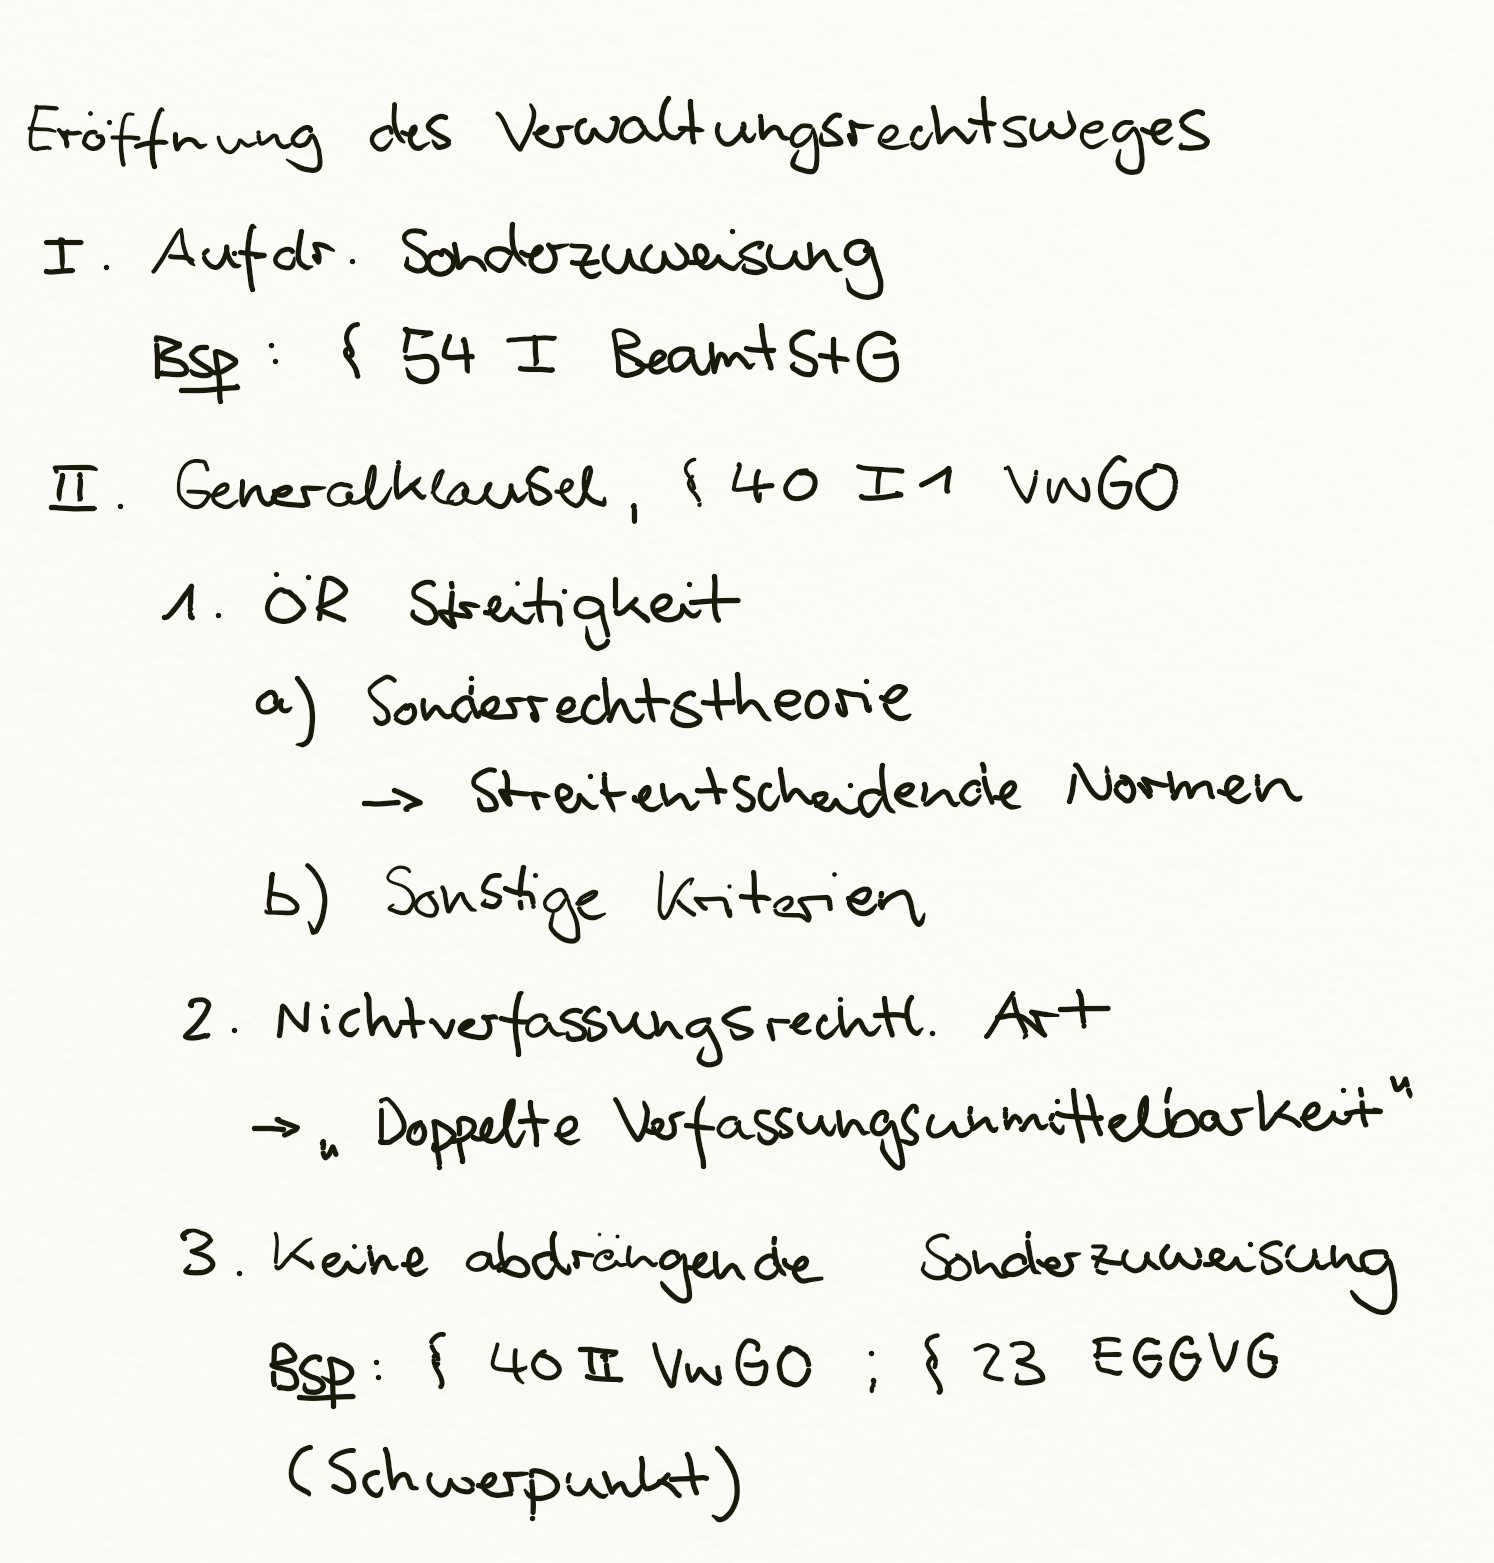 Eröffnung des Verwaltungsrechtsweges
I. Aufdr. Sonderzuweisung
Bsp: § 54 I BeamtStG
II. Generalklausel, § 40 I 1 VwGO
1. ÖR Streitigkeit
a) Sonderrechtstheorie
→ Streitentscheidende Normen
b) Sonstige Kriterien
2. Nichtverfassungsrechtl. Art
→ „Doppelte Verfassungsunmittelbarkeit"
3. Keine abdrängende Sonderzuweisung
Bsp: § 40 II VwGO ; § 23 EGGVG
(Schwerpunkt)